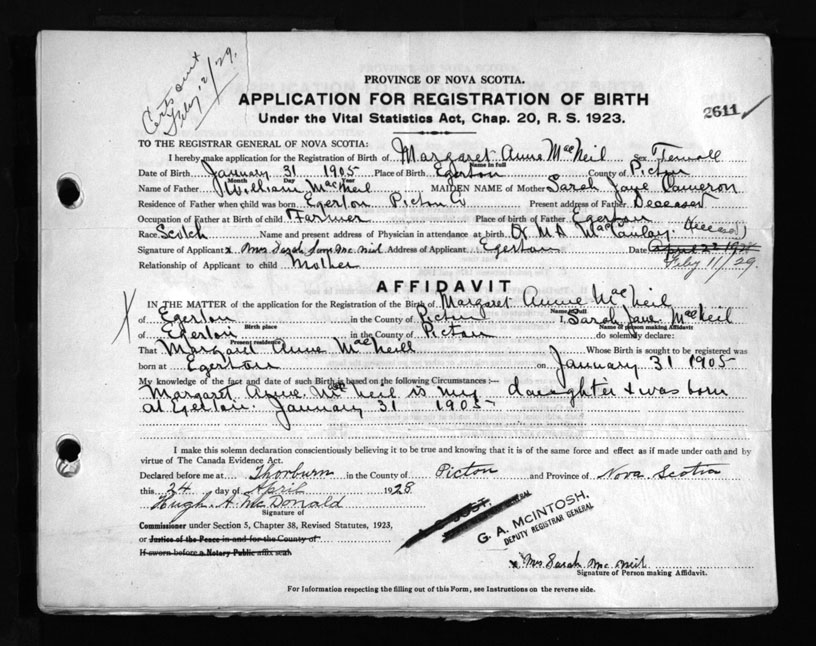 Cert sent
Feby 12/29.
PROVINCE OF NOVA SCOTIA.
APPLICATION FOR REGISTRATION OF BIRTH
Under the Vital Statistics Act, Chap. 20, R. S. 1923.
2611
TO THE REGISTRAR GENERAL OF NOVA SCOTIA:
I hereby make application for the Registration of Birth of Margaret Anne MacNeil Sex Female
Name in full
Date of Birth January 31 1905 Place of Birth Egerton County of Pictou
Month Day Year
Name of Father William MacNeil MAIDEN NAME of Mother Sarah Jane Cameron
Residence of Father when child was born Egerton Pictou Co Present address of Father Deceased
Occupation of Father at Birth of child Farmer Place of birth of Father Egerton
Race Scotch Name and present address of Physician in attendance at birth Dr M.A. MacCaulay. (Deceased)
Signature of Applicant x Mrs Sarah Jane Mc Neil Address of Applicant Egerton Date April 23 1928
Feby 11/29.
Relationship of Applicant to child Mother
AFFIDAVIT
IN THE MATTER of the application for the Registration of the Birth of Margaret Anne MacNeil
Name in full
of Egerton in the County of Pictou I, Sarah Jane MacNeil
Birth place Name of person making Affidavit
of Egerton in the County of Pictou do solemnly declare:
Present residence
That Margaret Anne MacNeill Whose Birth is sought to be registered was
born at Egerton on January 31 1905
My knowledge of the fact and date of such Birth is based on the following Circumstances:—
Margaret Anne MacNeil is my daughter & was born
at Egerton. January 31 1905
I make this solemn declaration conscientiously believing it to be true and knowing that it is of the same force and effect as if made under oath and by
virtue of The Canada Evidence Act.
Declared before me at Thorburn in the County of Picton and Province of Nova Scotia
this 24 day of April 1928
Hugh. A. McDonald
Signature of
Commissioner under Section 5, Chapter 38, Revised Statutes, 1923,
or Justice of the Peace in and for the County of
If sworn before a Notary Public affix seal.
G. A. McINTOSH,
DEPUTY REGISTRAR GENERAL
x Mrs. Sarah Mc Neil
Signature of Person making Affidavit.
For Information respecting the filling out of this Form, see Instructions on the reverse side.